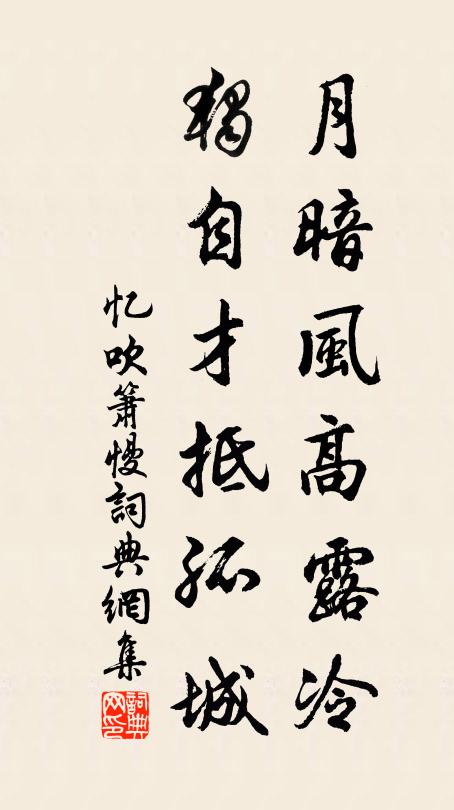 月暗風高露冷
獨自才抵孤城
忆吹簫慢詞典網集
詞典网印